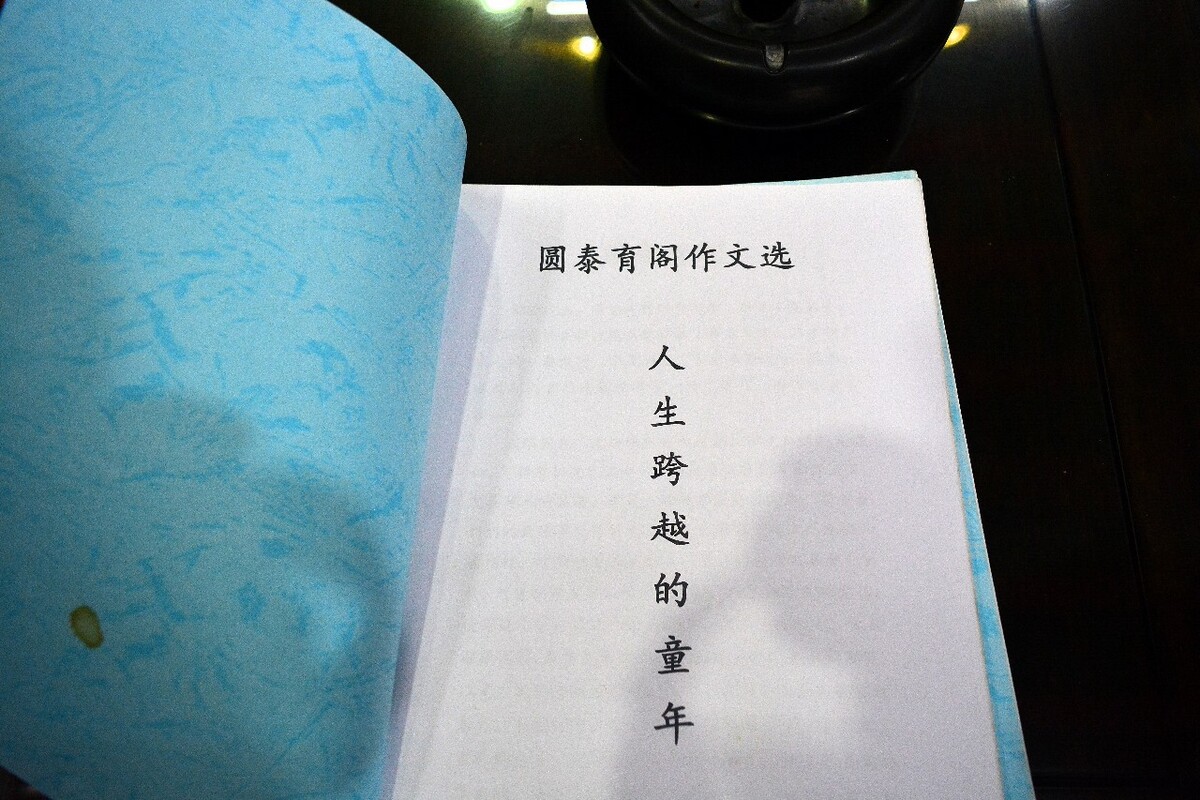 圆泰育阁作文选
人生跨越的童年